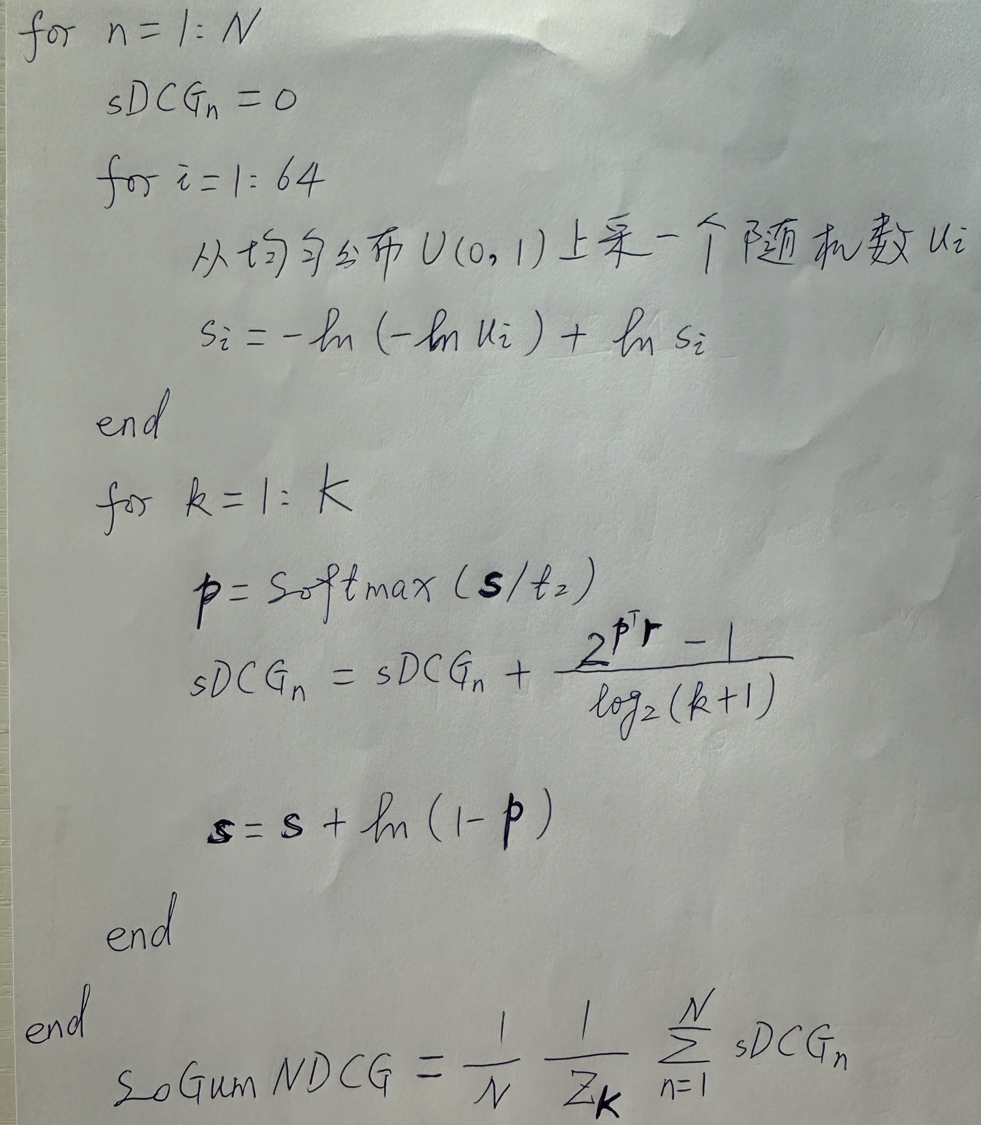 for n = 1 : N
sDCG_n = 0
for i = 1 : 64
从均匀分布 U(0, 1) 上采一个随机数 u_i
s_i = -ln (-ln u_i) + ln s_i
end
for k = 1 : K
p = Softmax (s/t_2)
sDCG_n = sDCG_n + \frac{2^{p^T r} - 1}{log_2 (k+1)}
s = s + ln (1 - p)
end
end
SoGumNDCG = \frac{1}{N} \frac{1}{Z_K} \sum_{n=1}^{N} sDCG_n